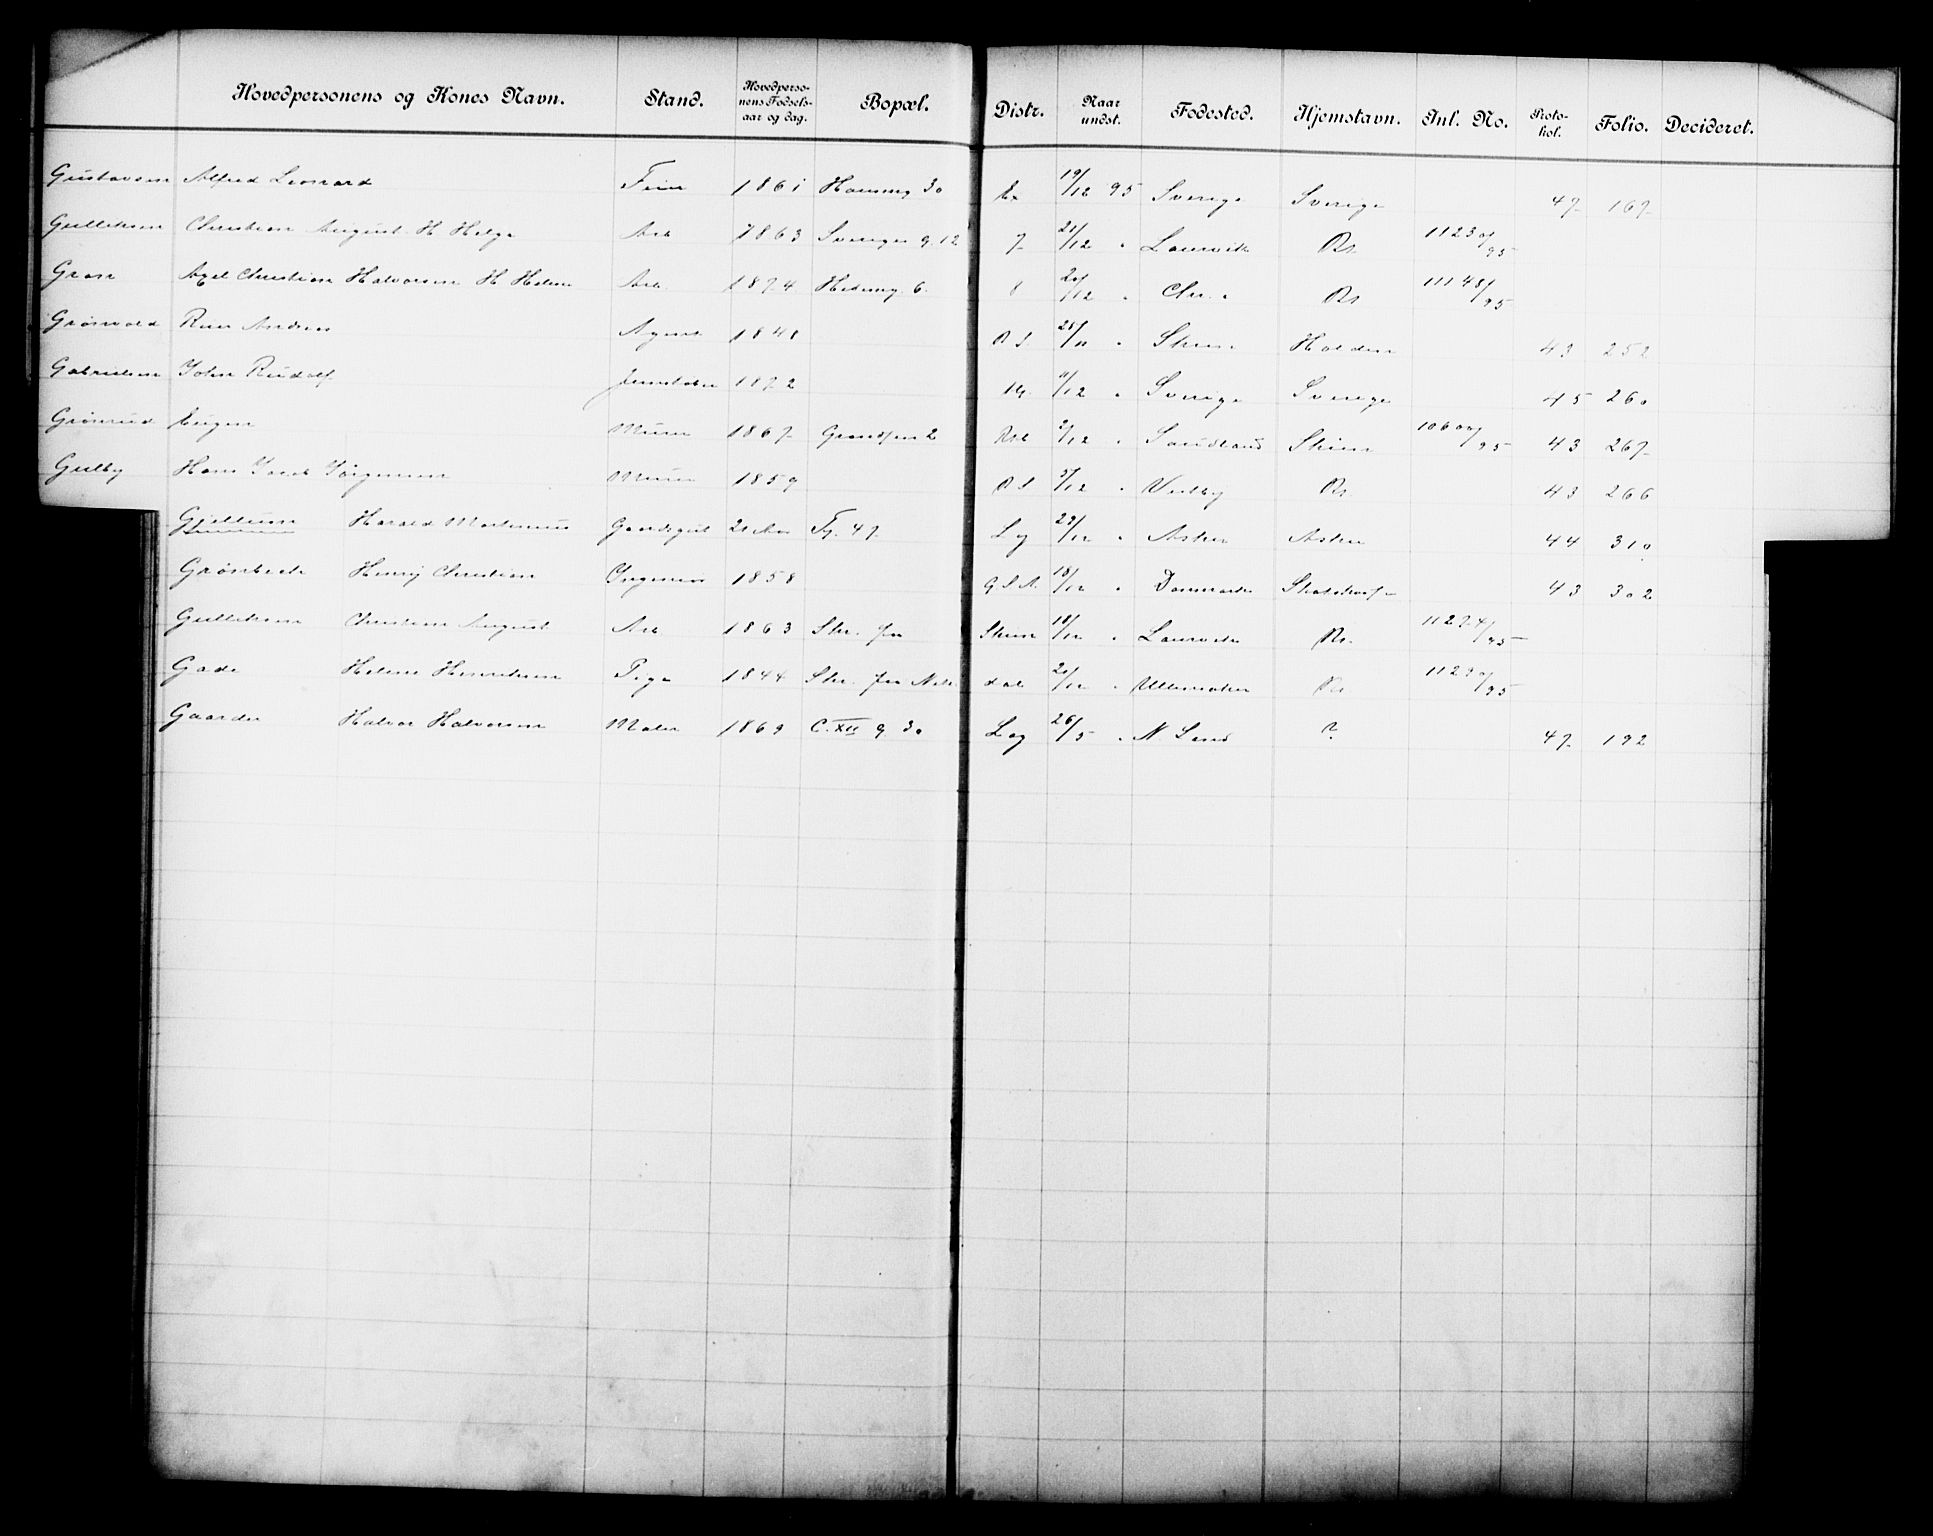 Hovedpersonens og Kones Navn. Stand. Hovedperso-nens Fødsels-aar og dag. Bopæl. Distr. Naar undst. Fødested. Hjemstavn. Inl. No. Proto-kol. Folio. Decideret.
Gustavsen Alfred Leonard Feier 1861 30 19/12 95 Sverige Sverige 47 167
Gulliksen Christian August H Helga Arb 1863 Sverigesg. 12 7 21/12 " Laurvik Rs 11230/95
Gran Axel Christian Halvorsen H Helene Arb 1874 6 8 20/12 " Chr.a Rs 11148/95
Grönvold Andreas Agent 1848 R S 28/11 " Skien Halden 43 252
Gabrielsen John Rudolf Jernstøber 1872 11/12 " Sverige Sverige 45 260
Grönrud Eugen Murer 1867 2 2/12 " Skien 10600/95 43 267
Gulby Hans Jacob Jörgensen Murer 1859 R S 5/12 " Rs 43 266
Gjellum Harald Martinius Gaardsgut 21 Aar Tg. 47 Lag 29/12 " Asker Asker 44 310
Grönbech Henry Christian Ingeniör 1858 18/12 " Danmark 43 302
Gulliksen Christian August Arb 1863 Str. fra Skien 18/12 " Laurvik Rs. 11274/95
Gade Helene Henriksen Pige 1844 Str. fra Nittedal 21/12 " Ullensaker Rs 11290/95
Gaarder Halvor Halvorsen Maler 1869 C. XII g 30 Lag 26/5 " N Land ? 47 192